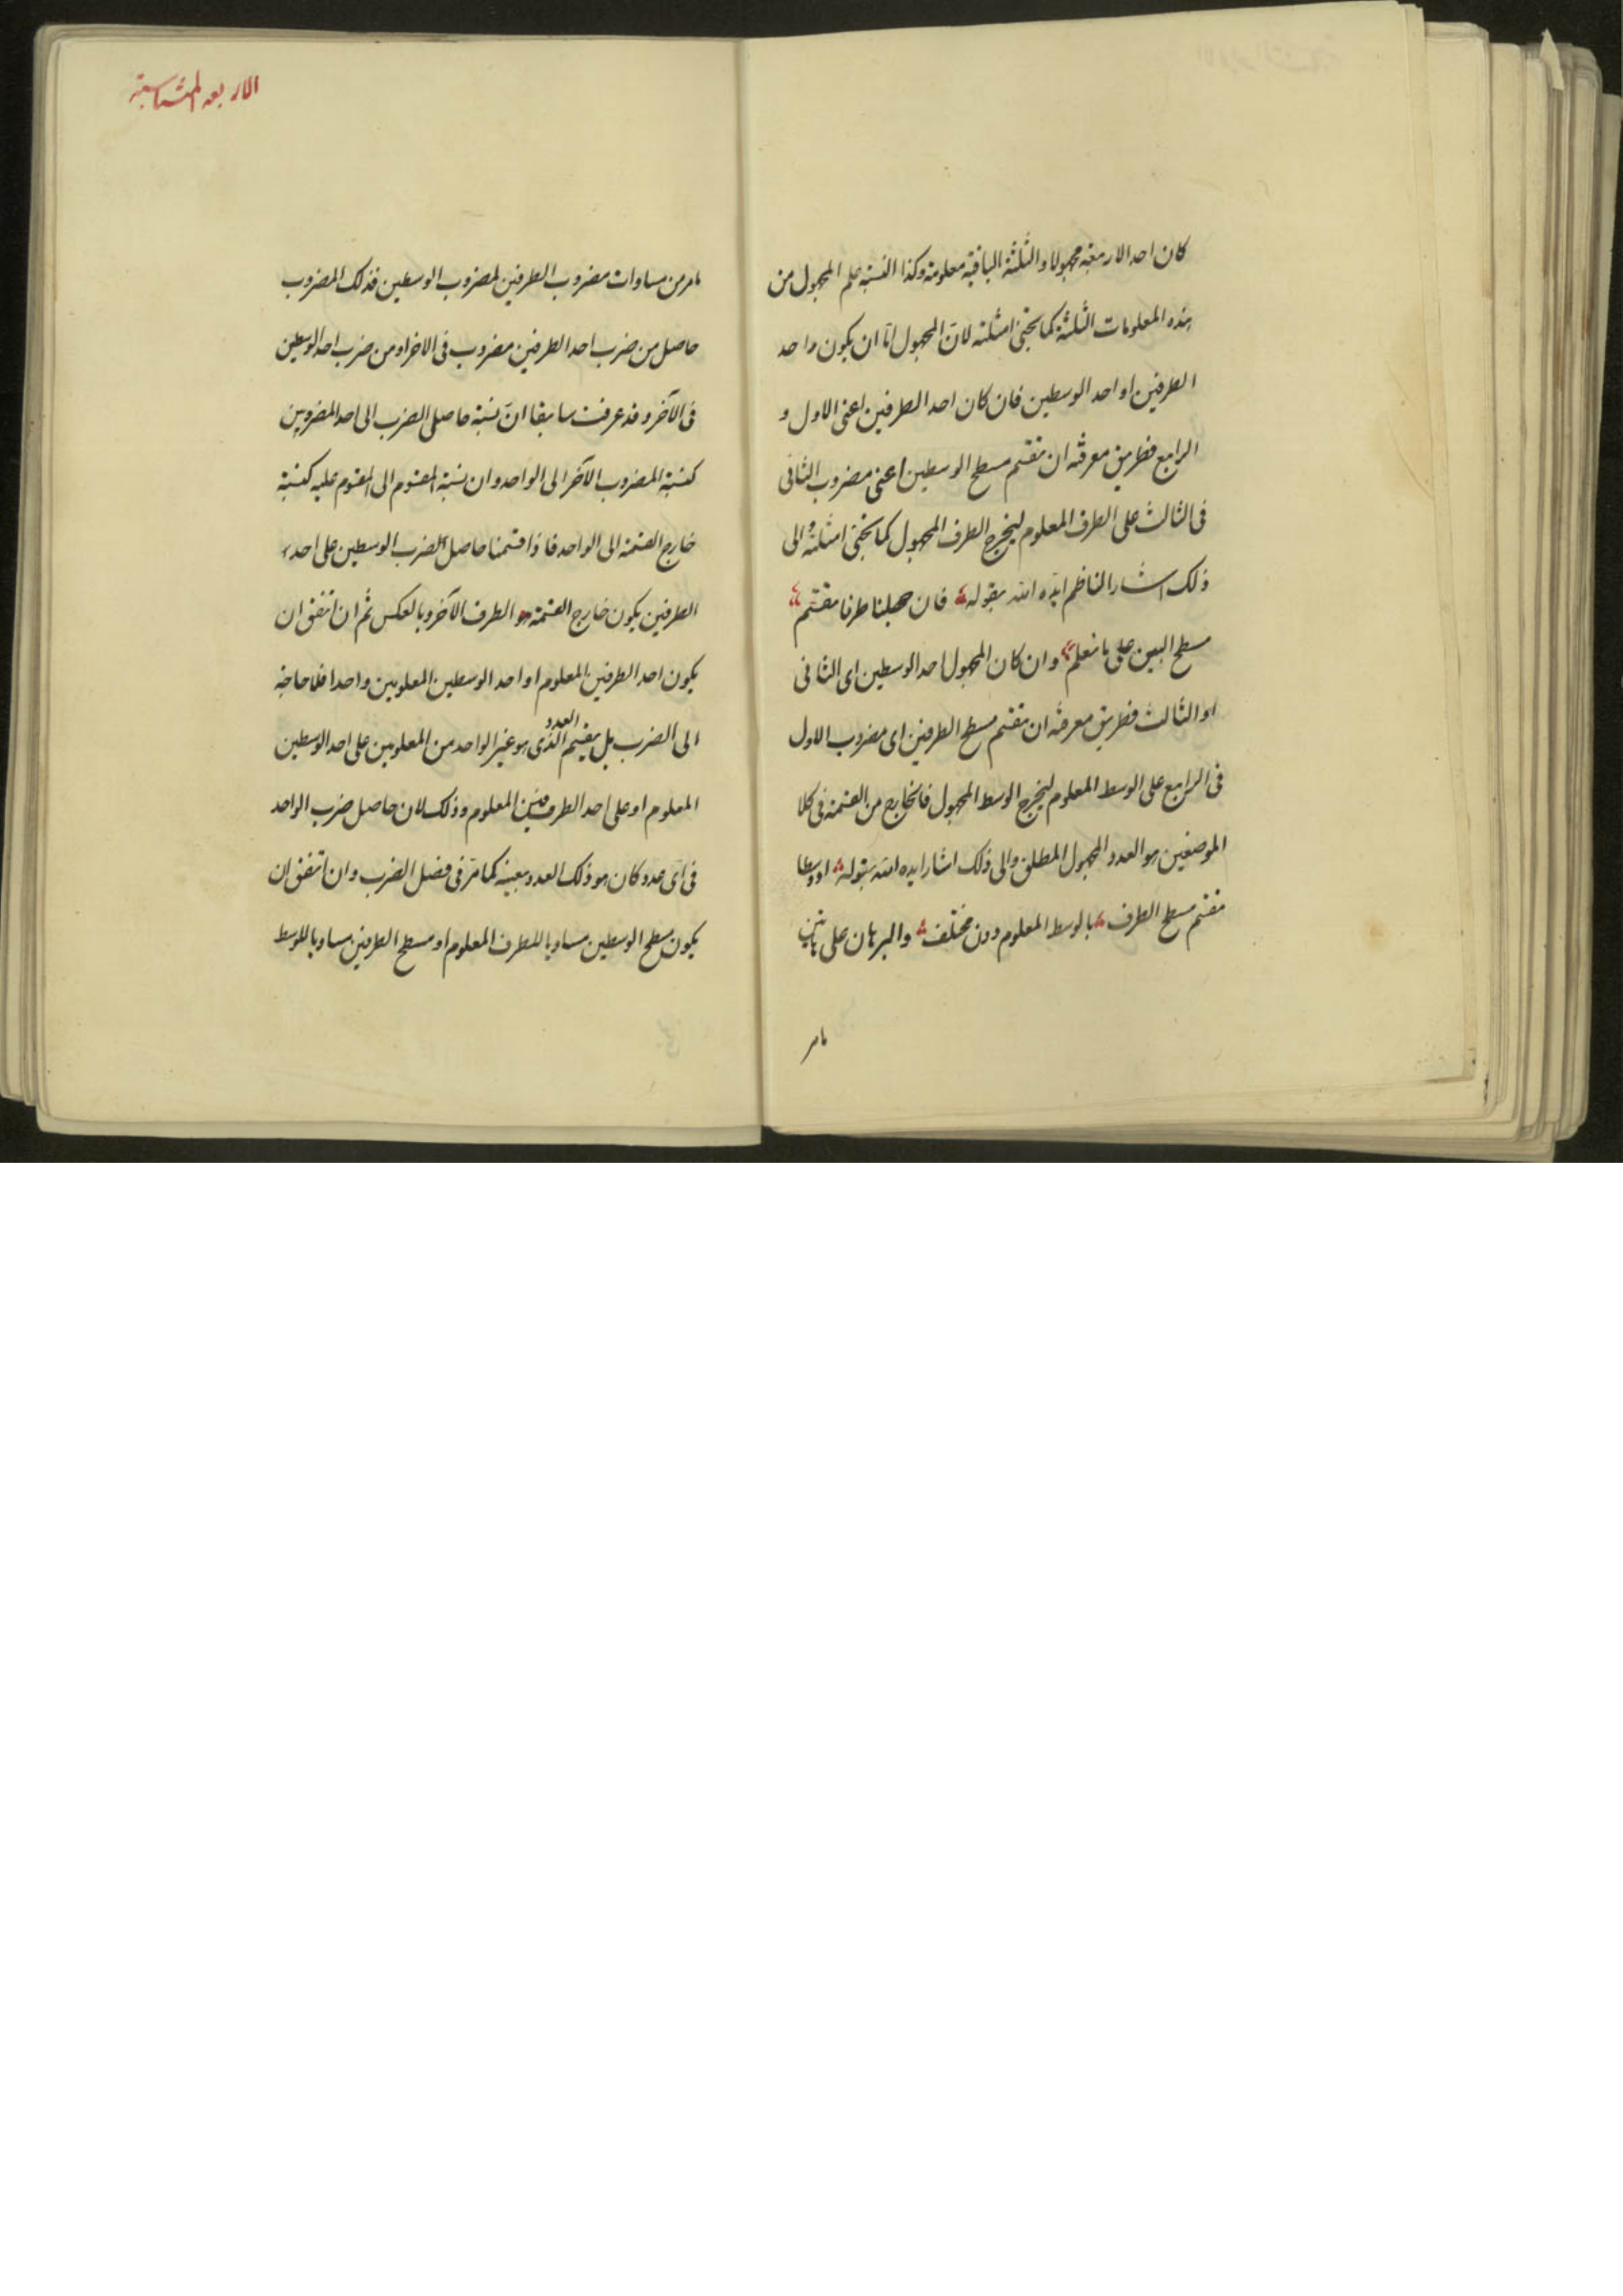 كان احد الاربعة مجهولا والثلثة الباقية معلومة وكذا النسبة علم المجهول من
هذه المعلومات الثلثة كما يجئ امثلته لان المجهول اما ان يكون احد
الطرفين او احد الوسطين فان كان احد الطرفين اعنى الاول و
الرابع فطريق معرفته ان تقسم مسطح الوسطين اعنى مضروب الثانى
فى الثالث على الطرف المعلوم ليخرج الطرف المجهول كما يجئ امثلته والى
ذلك اشار الناظم ايده الله بقوله فان جهلنا طرفا مقسم
مسطح البين على ما نعلم وان كان المجهول احد الوسطين اى الثانى
او الثالث فطريق معرفته ان تقسم مسطح الطرفين اى مضروب الاول
فى الرابع على الوسط المعلوم ليخرج الوسط المجهول فالخارج من القسمة فى كلا
الموضعين هو العدد المجهول المطلق والى ذلك اشار ايده الله بقوله او وسطا
مقسم مسطح الطرف بالوسط المعلوم دون مختلف والبرهان على هاتين
مامر
الاربعه المتناسبة
مامر من مساوات مضروب الطرفين لمضروب الوسطين فذلك المضروب
حاصل من ضرب احد الطرفين مضروب فى الاخر او من ضرب احد الوسطين
فى الآخر وقد عرفت سابقا ان نسبة حاصل الضرب الى احد المضروبين
كنسبة المضروب الآخر الى الواحد وان نسبة المقسوم الى المقسوم عليه كنسبة
خارج القسمة الى الواحد فاذا قسمنا حاصل الضرب الوسطين على احد
الطرفين يكون خارج القسمة هو الطرف الآخر وبالعكس ثم ان اتفق ان
يكون احد الطرفين المعلوم او احد الوسطين المعلومين واحدا فلا حاجة
الى الضرب بل يقسم العدد الذى هو غير الواحد من المعلومين على احد الوسطين
المعلوم او على احد الطرفين المعلوم وذلك لان حاصل ضرب الواحد
فى اى عدد كان هو ذلك العدد بعينه كما مر فى فصل الضرب وان اتفق ان
يكون مسطح الوسطين مساويا للطرف المعلوم او مسطح الطرفين مساويا للوسط